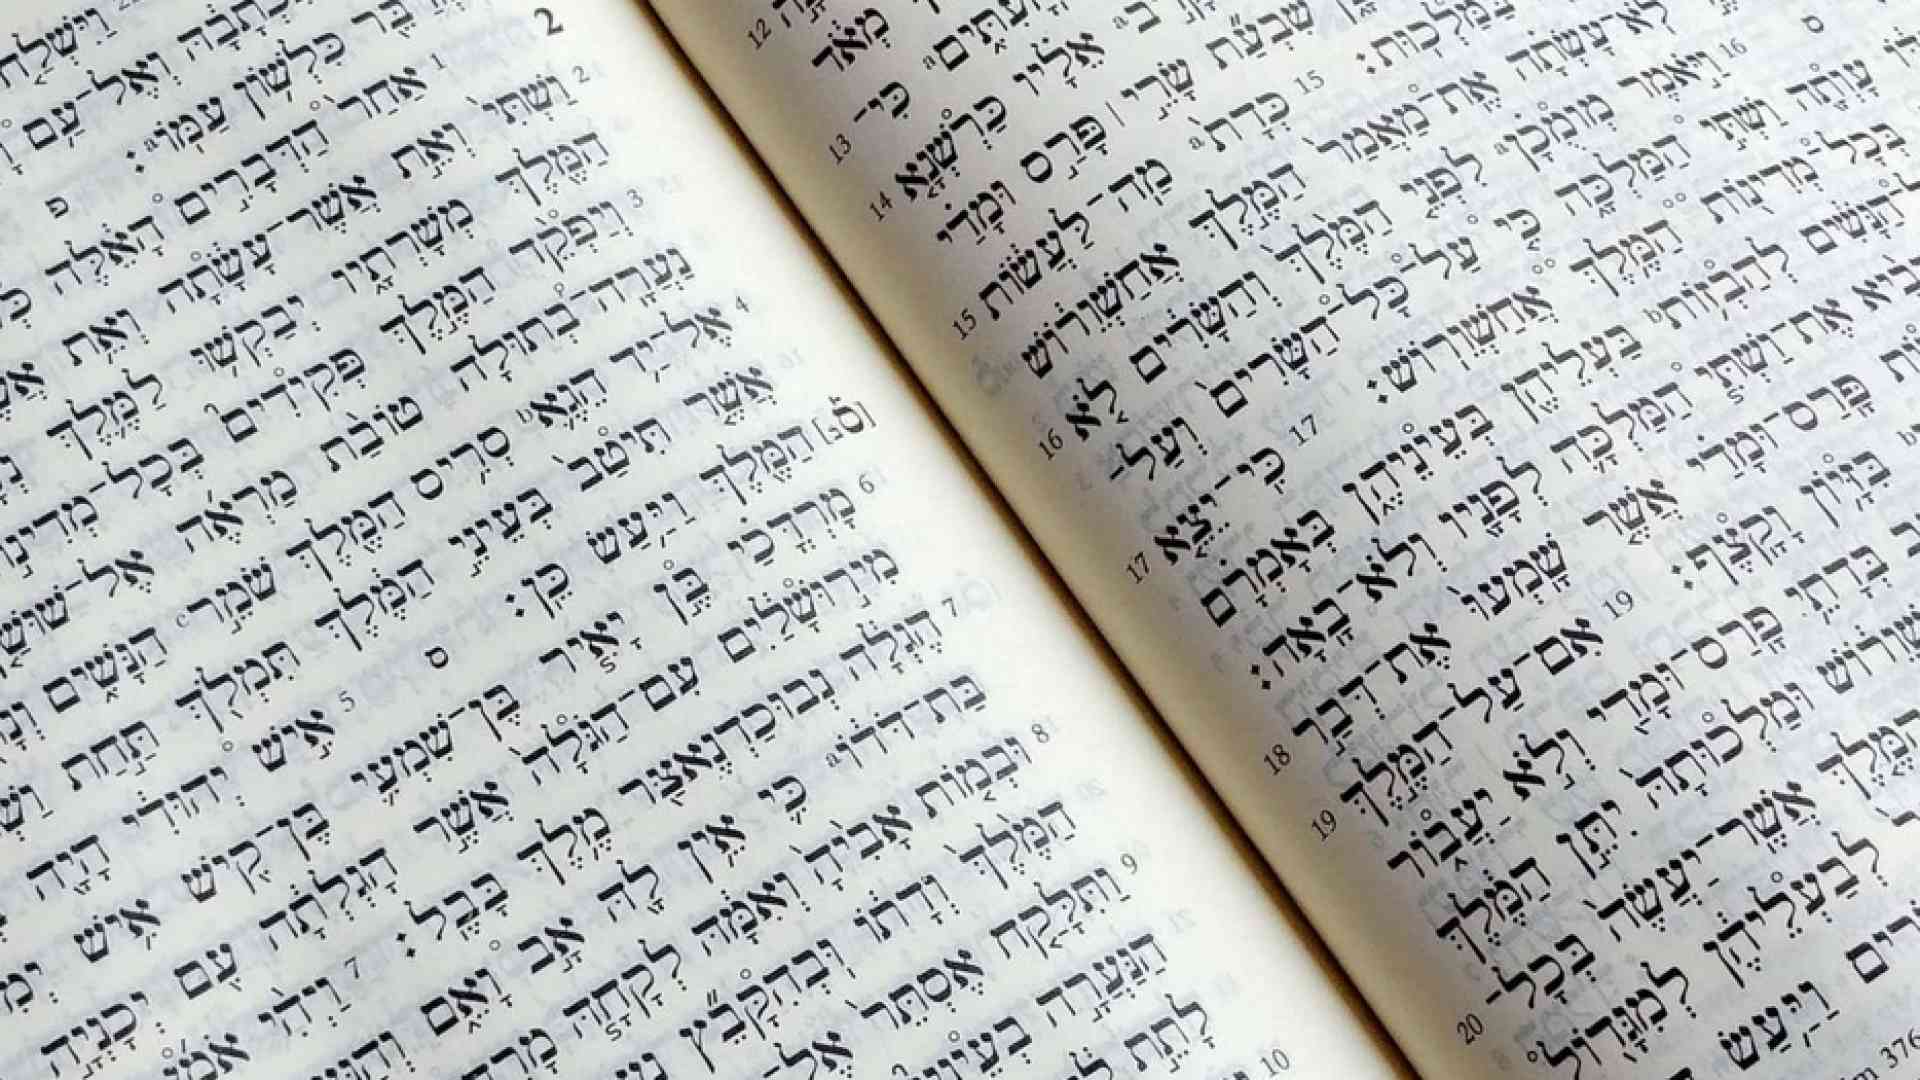 מְאֹד 12
הָעִתִּים כִּי־ 13
אֵלָיו כַּרְשְׁנָא 14
שִׁבְעַת שָׂרֵי ׀ פָּרַס וּמָדַי
בַּמַּלְכוּת׃ 15 כְּדָת מַה־לַּעֲשׂוֹת 15
לֹא־עָשְׂתָה אֶת־מַאֲמַר הַמֶּלֶךְ אֲחַשְׁוֵרוֹשׁ
16 וַיֹּאמֶר מוּמְכָן לִפְנֵי הַמֶּלֶךְ וְהַשָּׂרִים לֹא 16
עָוְתָה וַשְׁתִּי הַמַּלְכָּה כִּי עַל־כָּל־הַשָּׂרִים וְעַל־
בְּכָל־מְדִינוֹת הַמֶּלֶךְ אֲחַשְׁוֵרוֹשׁ׃ 17 כִּי־יֵצֵא 17
הַנָּשִׁים לְהַבְזוֹת בַּעְלֵיהֶן בְּעֵינֵיהֶן בְּאָמְרָם
אֶת־וַשְׁתִּי הַמַּלְכָּה לְפָנָיו וְלֹא־בָאָה׃
פָּרַס־וּמָדַי אֲשֶׁר שָׁמְעוּ אֶת־דְּבַר 18
בִּזָּיוֹן וָקָצֶף׃ 19 אִם־עַל־הַמֶּלֶךְ 19
בְּדָתֵי פָרַס־וּמָדַי וְלֹא יַעֲבוֹר
וּמַלְכוּתָהּ יִתֵּן הַמֶּלֶךְ
הַמֶּלֶךְ אֲשֶׁר־יַעֲשֶׂה בְּכָל־ 20
לְבַעְלֵיהֶן לְמִגָּדוֹל
וַיַּעַשׂ
376
וְאֶל־עַם
כִּלְשׁוֹן עַמּוֹ׃ פ
2 1 אַחַר הַדְּבָרִים הָאֵלֶּה
2 וַשְׁתִּי וְאֵת אֲשֶׁר־עָשָׂתָה וְאֵת
הַמֶּלֶךְ מְשָׁרְתָיו יְבַקְשׁוּ לַמֶּלֶךְ
3 וְיַפְקֵד הַמֶּלֶךְ פְּקִידִים בְּכָל־מְדִינוֹת
נַעֲרָה־בְתוּלָה טוֹבַת מַרְאֶה אֶל־שׁוּשַׁן
4 אֶל־יַד הֵגֶא סְרִיס הַמֶּלֶךְ שֹׁמֵר הַנָּשִׁים
אֲשֶׁר תִּיטַב בְּעֵינֵי הַמֶּלֶךְ תִּמְלֹךְ תַּחַת
הַמֶּלֶךְ וַיַּעַשׂ כֵּן׃ ס 5 אִישׁ יְהוּדִי הָיָה
6 מָרְדֳּכַי בֶּן יָאִיר בֶּן־שִׁמְעִי בֶּן־קִישׁ אִישׁ
מִירוּשָׁלַיִם עִם־הַגֹּלָה אֲשֶׁר הָגְלְתָה עִם יְכָנְיָה
7 הֶגְלָה נְבוּכַדְנֶאצַּר מֶלֶךְ בָּבֶל׃ 7 וַיְהִי אֹמֵן
בַּת־דֹּדוֹ כִּי אֵין לָהּ אָב וָאֵם
8 וּבְמוֹת אָבִיהָ וְאִמָּהּ לְקָחָהּ
הַמֶּלֶךְ וְדָתוֹ וּבְהִקָּבֵץ
9 וַתִּלָּקַח אֶסְתֵּר אֶל־
הַנַּעֲרָה בְעֵינָיו
10 לָתֵת